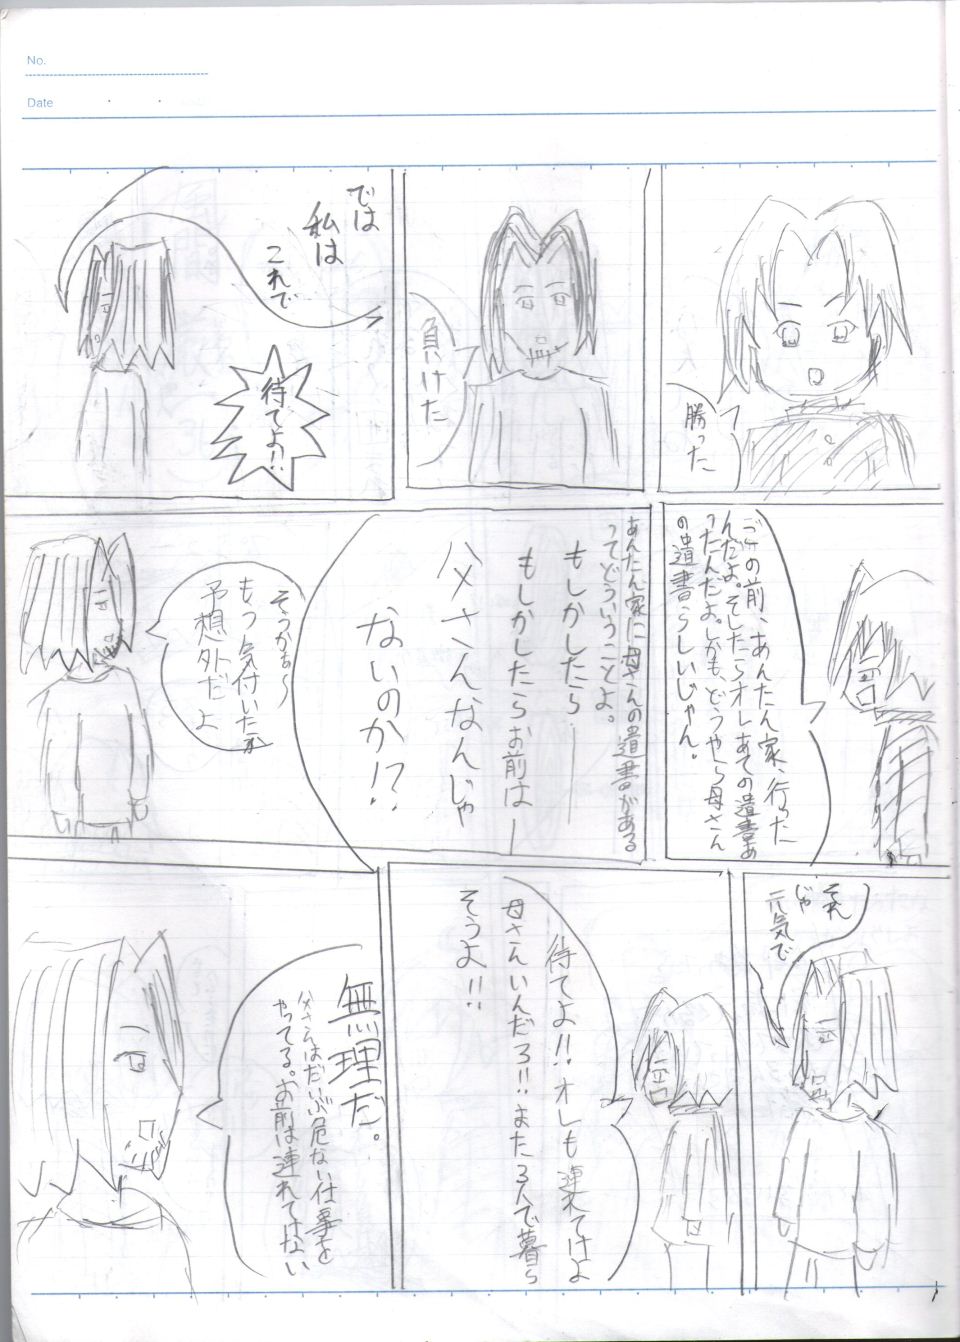 No.
Date
勝った
負けた
では
私は
これで
待てよ!!
この前、あんたん家、行った
んだよ。そしたらオレあての遺書あ
ったんだよ。しかもどうやら母さん
の遺書らしいじゃん。
あんたん家に母さんの遺書がある
ってどういうことよ。
もしかしたら
もしかしたらお前は―
父さんなんじゃ
ないのか!?
そうかぁ〜
もう気付いたか
予想外だよ
それ
じゃ
元気で
待てよ!!オレも連れてけよ
母さんいんだろ!!また3人で暮ら
そうよ!!
無理だ。
父さんはだいぶ危ない仕事を
やってる。お前は連れてけない